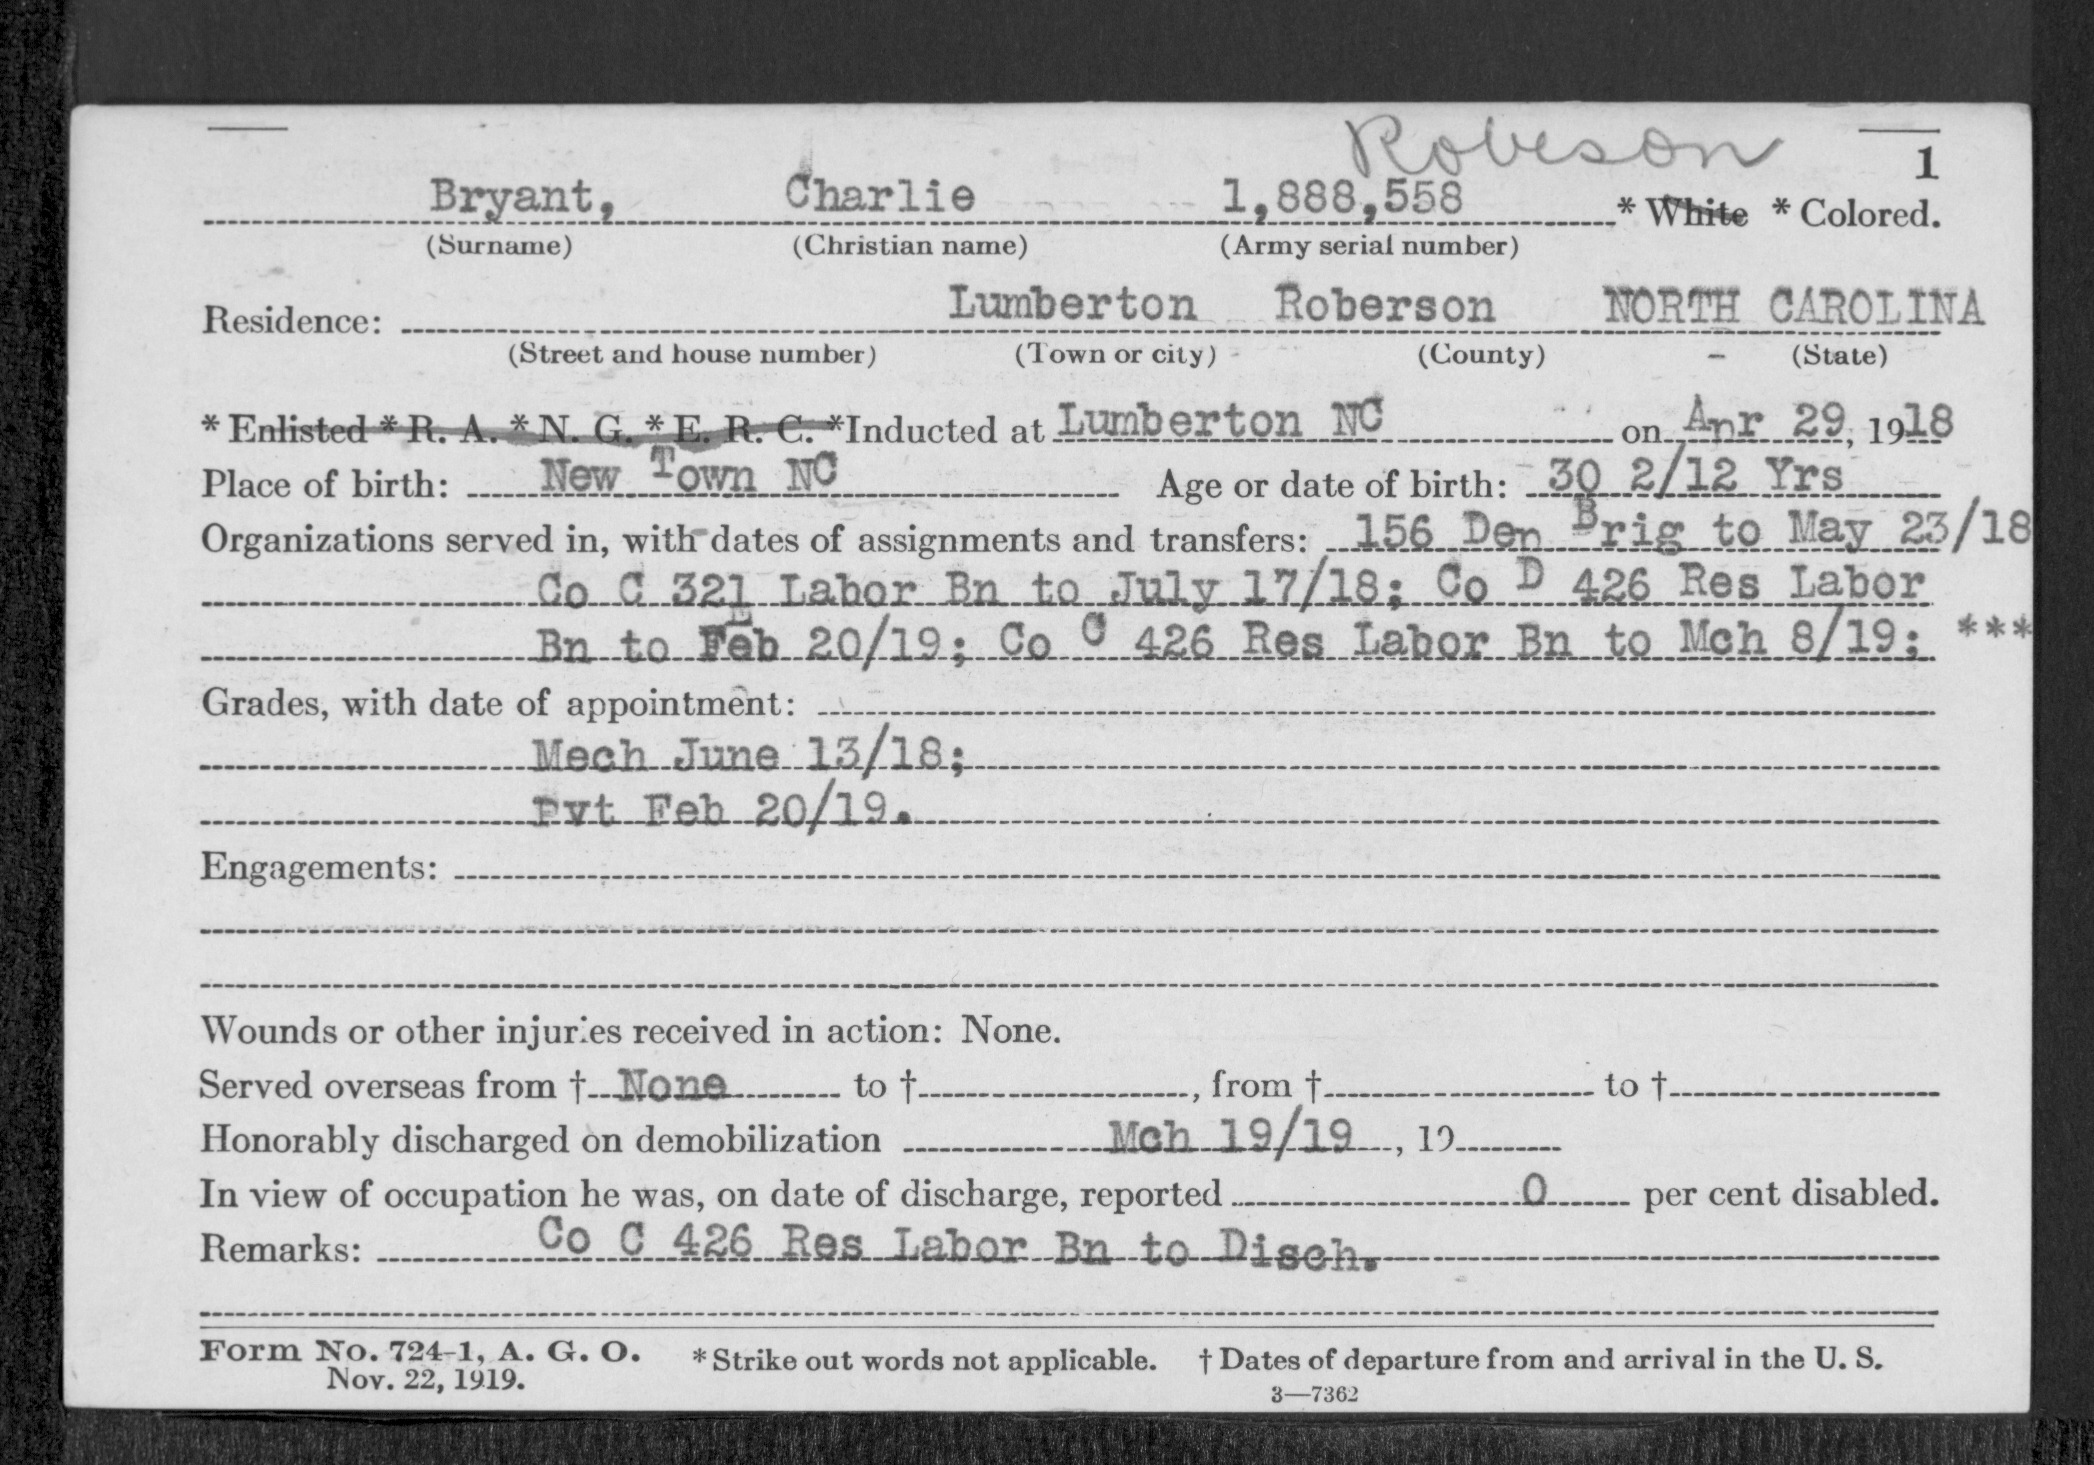 Robeson
1
Bryant, Charlie 1,888,558 * White * Colored.
(Surname) (Christian name) (Army serial number)
Residence: Lumberton Roberson NORTH CAROLINA
(Street and house number) (Town or city) (County) (State)
* Enlisted * R. A. * N. G. * E. R. C. * Inducted at Lumberton NC on Apr 29, 1918
Place of birth: New Town NC Age or date of birth: 30 2/12 Yrs
Organizations served in, with dates of assignments and transfers: 156 Dep Brig to May 23/18
Co C 321 Labor Bn to July 17/18; Co D 426 Res Labor
Bn to Feb 20/19; Co C 426 Res Labor Bn to Mch 8/19; ***
Grades, with date of appointment:
Mech June 13/18;
Pvt Feb 20/19.
Engagements:
Wounds or other injuries received in action: None.
Served overseas from † None to †, from † to †
Honorably discharged on demobilization Mch 19/19, 19
In view of occupation he was, on date of discharge, reported 0 per cent disabled.
Remarks: Co C 426 Res Labor Bn to Disch.
Form No. 724-1, A. G. O. * Strike out words not applicable. † Dates of departure from and arrival in the U. S.
Nov. 22, 1919.
3—7362